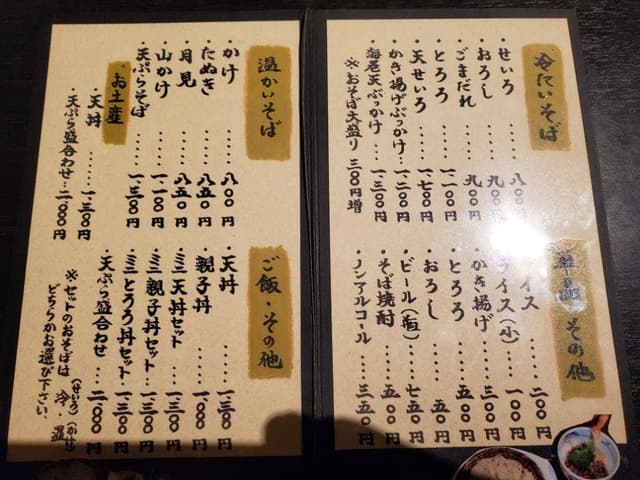 冷たいそば
・せいろ……八〇〇円
・おろし……九〇〇円
・ごまだれ……九〇〇円
・とろろ……一、一〇〇円
・天せいろ……一、七〇〇円
・かき揚げぶっかけ…一、二〇〇円
・海老天ぶっかけ…一、三〇〇円
※おそば大盛り 三〇〇円増
その他
イス……二〇〇円
ライス(小)……一〇〇円
・かき揚げ……三〇〇円
・とろろ……五〇円
・おろし……五〇円
・ビール(瓶)……七五〇円
・そば焼酎……五〇〇円
・ノンアルコール……三五〇円
温かいそば
・かけ……八〇〇円
・たぬき……八五〇円
・月見……八五〇円
・山かけ……一、一〇〇円
・天ぷらそば……一、三〇〇円
お土産
・天丼……一、三〇〇円
・天ぷら盛合わせ…二、〇〇〇円
ご飯・その他
・天丼……一、三〇〇円
・親子丼……一、〇〇〇円
・ミニ天丼セット…一、三〇〇円
・ミニ親子丼セット…一、三〇〇円
・ミニとろろ丼セット…一、三〇〇円
・天ぷら盛合わせ…二、〇〇〇円
※セットのおそばは 冷(せいろ)・温(かけ)
どちらかお選び下さい。